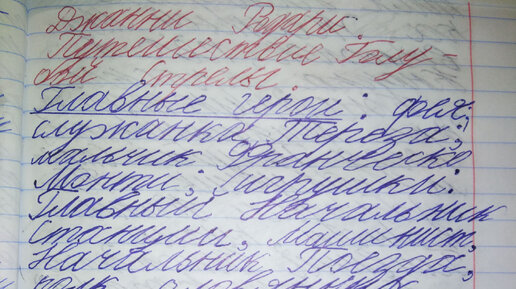 Джанни Родари.
Путешествие Голу-
бой Стрелы.
Главные герои: фея;
служанка Тереза;
мальчик Франческо
Монти; Игрушки:
Главный Начальник
станции, Машинист,
Начальник Поезда,